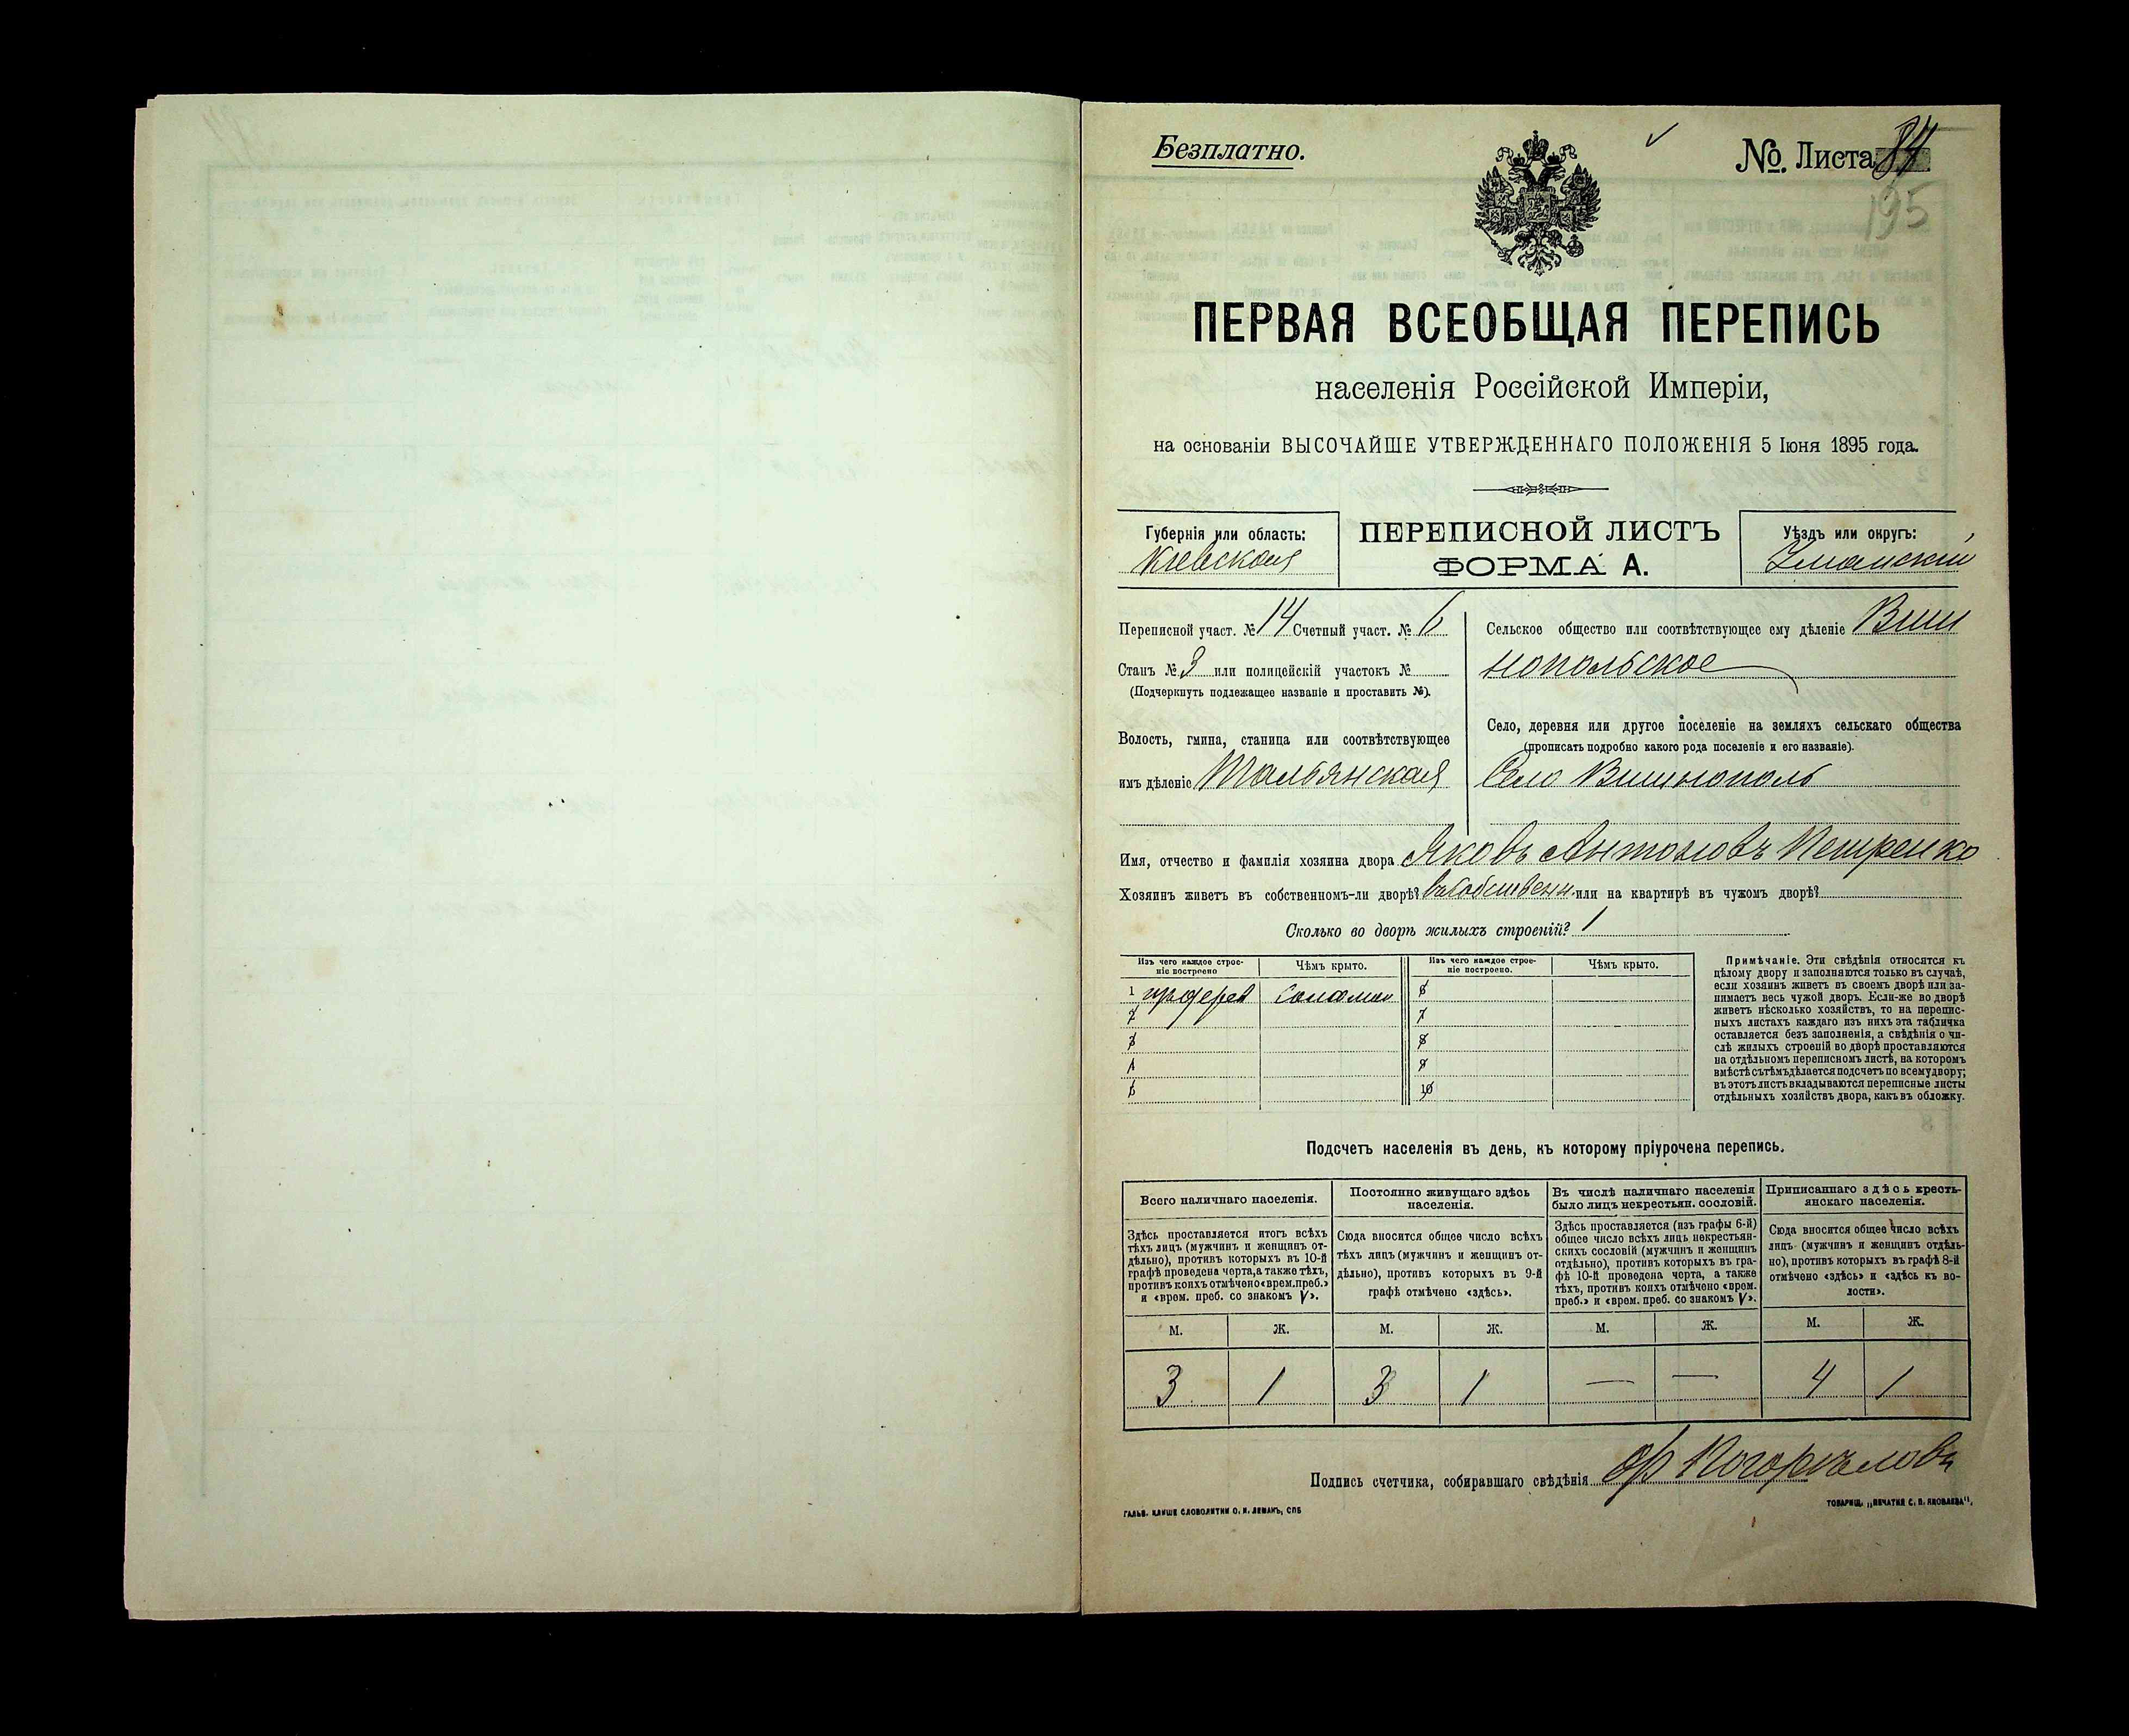 Безплатно.
№ Листа 84
195
ПЕРВАЯ ВСЕОБЩАЯ ПЕРЕПИСЬ
населенія Россійской Имперіи,
на основаніи ВЫСОЧАЙШЕ УТВЕРЖДЕННАГО ПОЛОЖЕНІЯ 5 Іюня 1895 года.
Губернія или область:
Кіевская
ПЕРЕПИСНОЙ ЛИСТЪ
ФОРМА А.
Уѣздъ или округъ:
Уманскій
Переписной участ. № 14 Счетный участ. № 6
Станъ № 3 или полицейскій участокъ №
(Подчеркнуть подлежащее названіе и проставить №).
Волость, гмина, станица или соотвѣтствующее
имъ дѣленіе Тальянская
Сельское общество или соотвѣтствующее ему дѣленіе Виш
нопольское
Село, деревня или другое поселеніе на земляхъ сельскаго общества
(прописать подробно какого рода поселеніе и его названіе).
Село Вишнополь
Имя, отчество и фамилія хозяина двора Яковъ Антоновъ Петренко
Хозяинъ живетъ въ собственномъ-ли дворѣ? въ собственн. или на квартирѣ въ чужомъ дворѣ?
Сколько во дворѣ жилыхъ строеній? 1
Изъ чего каждое строеніе построено
Чѣмъ крыто.
Изъ чего каждое строеніе построено.
Чѣмъ крыто.
1 соломой 6
2 7
3 8
4 9
5 10
Примѣчаніе. Эти свѣдѣнія относятся къ
цѣлому двору и заполняются только въ случаѣ,
если хозяинъ живетъ въ своемъ дворѣ или за-
нимаетъ весь чужой дворъ. Если-же во дворѣ
живетъ нѣсколько хозяйствъ, то на перепис-
ныхъ листахъ каждаго изъ нихъ эта табличка
оставляется безъ заполненія, а свѣдѣнія о чи-
слѣ жилыхъ строеній во дворѣ проставляются
на отдѣльномъ переписномъ листѣ, на которомъ
вмѣстѣ съ тѣмъ дѣлается подсчетъ по всему двору;
въ этотъ листъ вкладываются переписные листы
отдѣльныхъ хозяйствъ двора, какъ въ обложку.
Подсчетъ населенія въ день, къ которому пріурочена перепись.
Всего наличнаго населенія.
Здѣсь проставляется итогъ всѣхъ
тѣхъ лицъ (мужчинъ и женщинъ от-
дѣльно), противъ которыхъ въ 10-й
графѣ проведена черта, а также тѣхъ,
противъ коихъ отмѣчено «врем. преб.»
и «врем. преб. со знакомъ V».
Постоянно живущаго здѣсь
населенія.
Сюда вносится общее число всѣхъ
тѣхъ лицъ (мужчинъ и женщинъ от-
дѣльно), противъ которыхъ въ 9-й
графѣ отмѣчено «здѣсь».
Въ числѣ наличнаго населенія
было лицъ некрестьян. сословій.
Здѣсь проставляется (изъ графы 6-й)
общее число всѣхъ лицъ некрестьян-
скихъ сословій (мужчинъ и женщинъ
отдѣльно), противъ которыхъ въ гра-
фѣ 10-й проведена черта, а также
тѣхъ, противъ коихъ отмѣчено «врем.
преб.» и «врем. преб. со знакомъ V».
Приписаннаго здѣсь кресть-
янскаго населенія.
Сюда вносится общее число всѣхъ
лицъ (мужчинъ и женщинъ отдѣль-
но), противъ которыхъ въ графѣ 8-й
отмѣчено «здѣсь» и «здѣсь къ во-
лости».
М. Ж. М. Ж. М. Ж. М. Ж.
3 1 3 1 — — 4 1
Подпись счетчика, собиравшаго свѣдѣнія
ГАЛЬВ. КЛИШЕ СЛОВОЛИТНИ О. И. ЛЕМАНЪ, СПБ
ТОВАРИЩ. „ПЕЧАТНЯ С. П. ЯКОВЛЕВА".